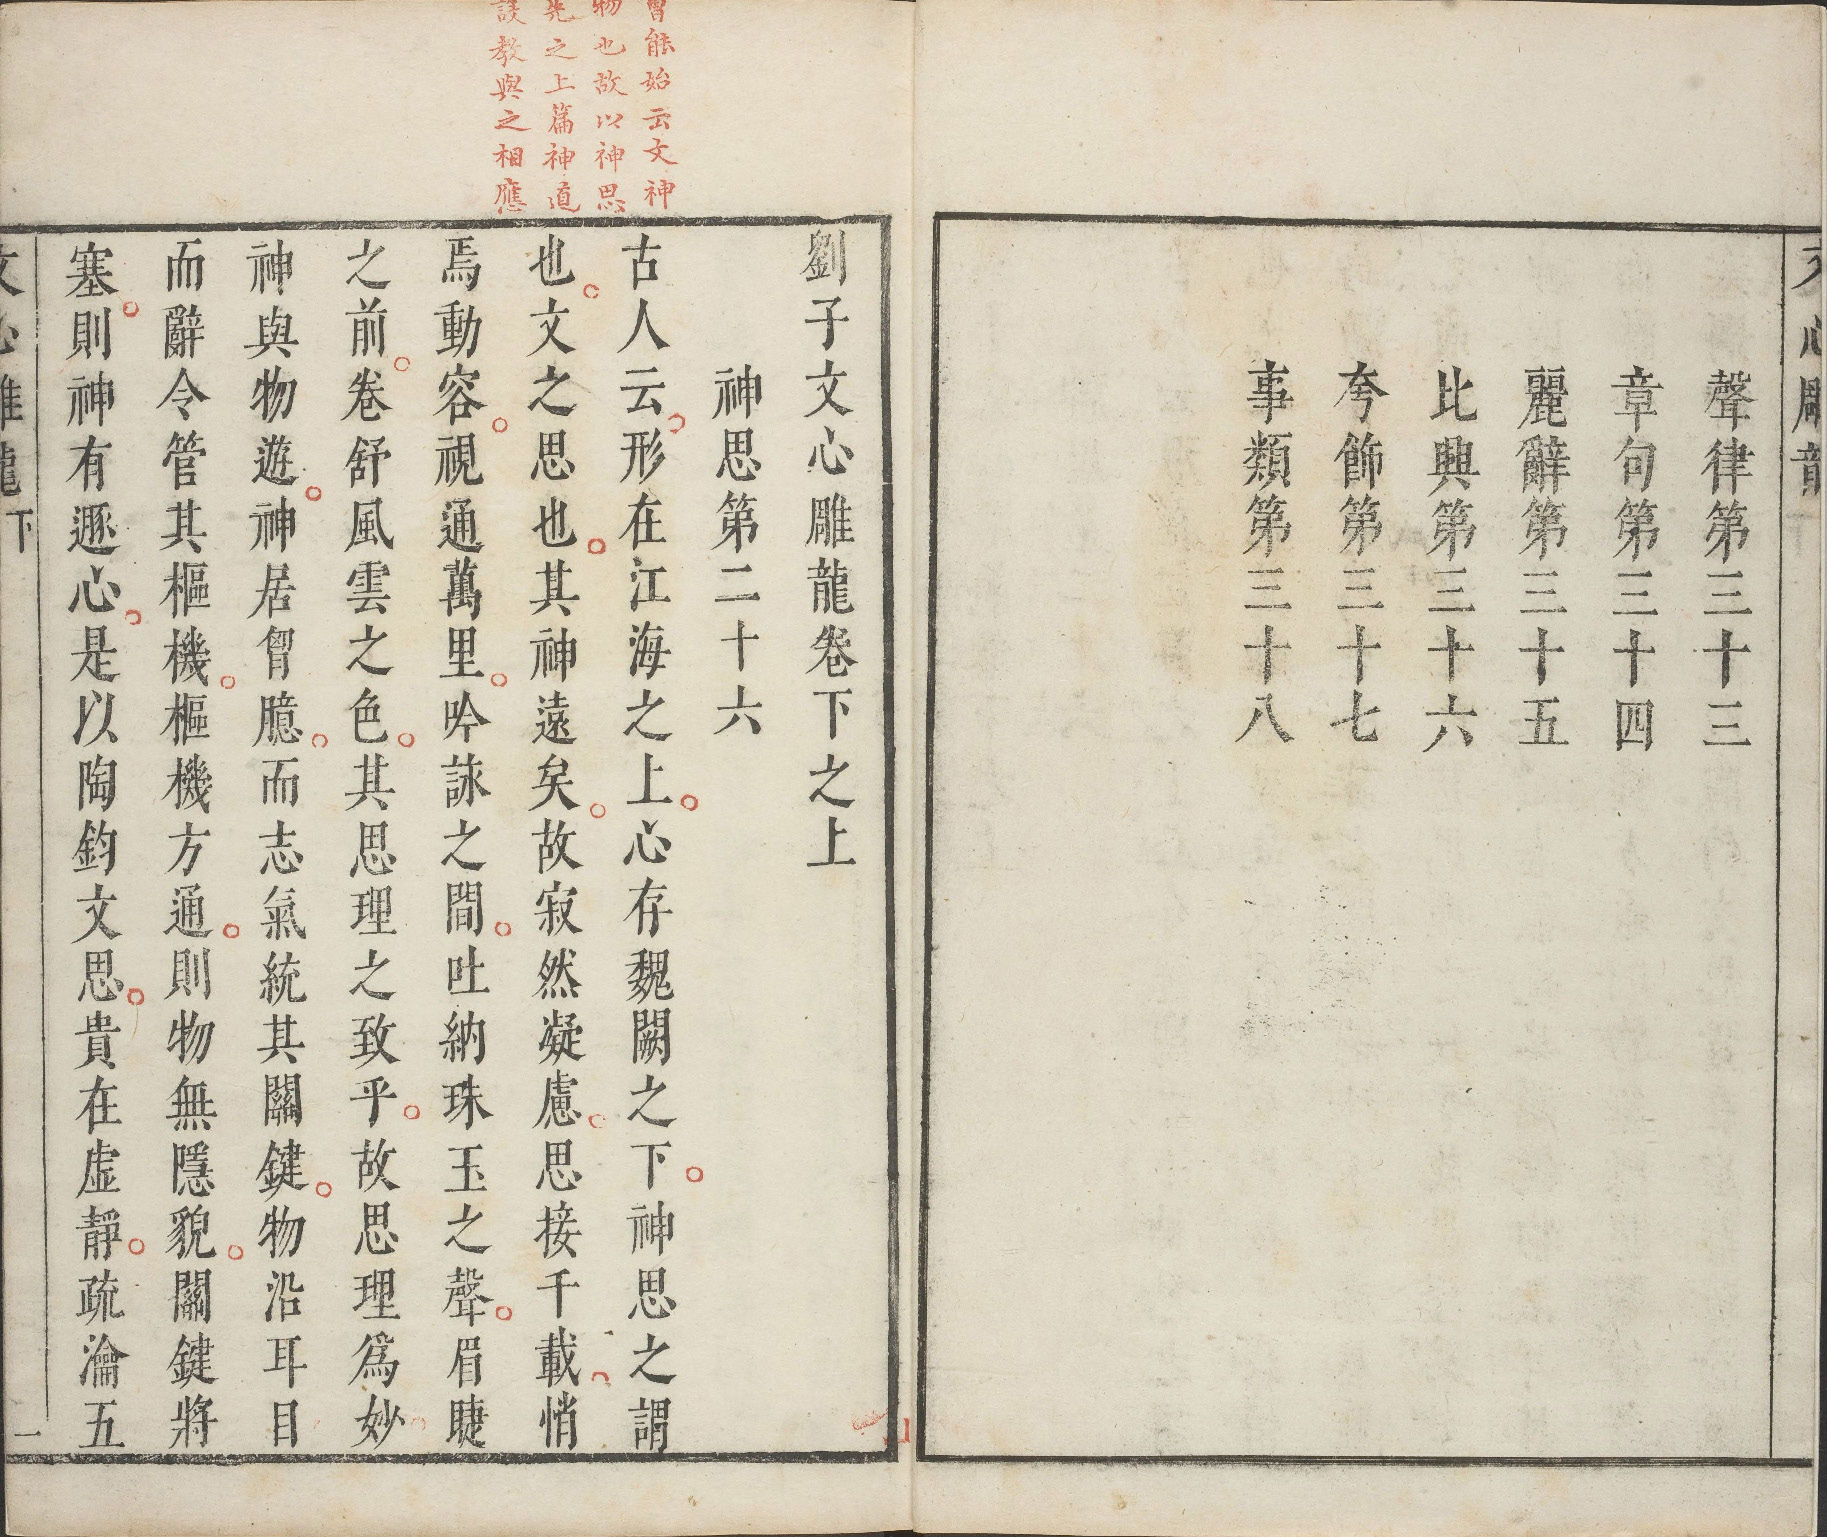 文心雕龍
聲律第三十三
章句第三十四
麗辭第三十五
比興第三十六
夸飾第三十七
事類第三十八
曾能始云文神
物也故以神思
先之上篇神道
設教與之相應
劉子文心雕龍卷下之上
神思第二十六
古人云形在江海之上心存魏闕之下神思之謂
也文之思也其神遠矣故寂然凝慮思接千載悄
焉動容視通萬里吟詠之間吐納珠玉之聲眉睫
之前卷舒風雲之色其思理之致乎故思理爲妙
神與物遊神居胷臆而志氣統其關鍵物沿耳目
而辭令管其樞機樞機方通則物無隱貌關鍵將
塞則神有遯心是以陶鈞文思貴在虛靜疏瀹五
文心雕龍下
一